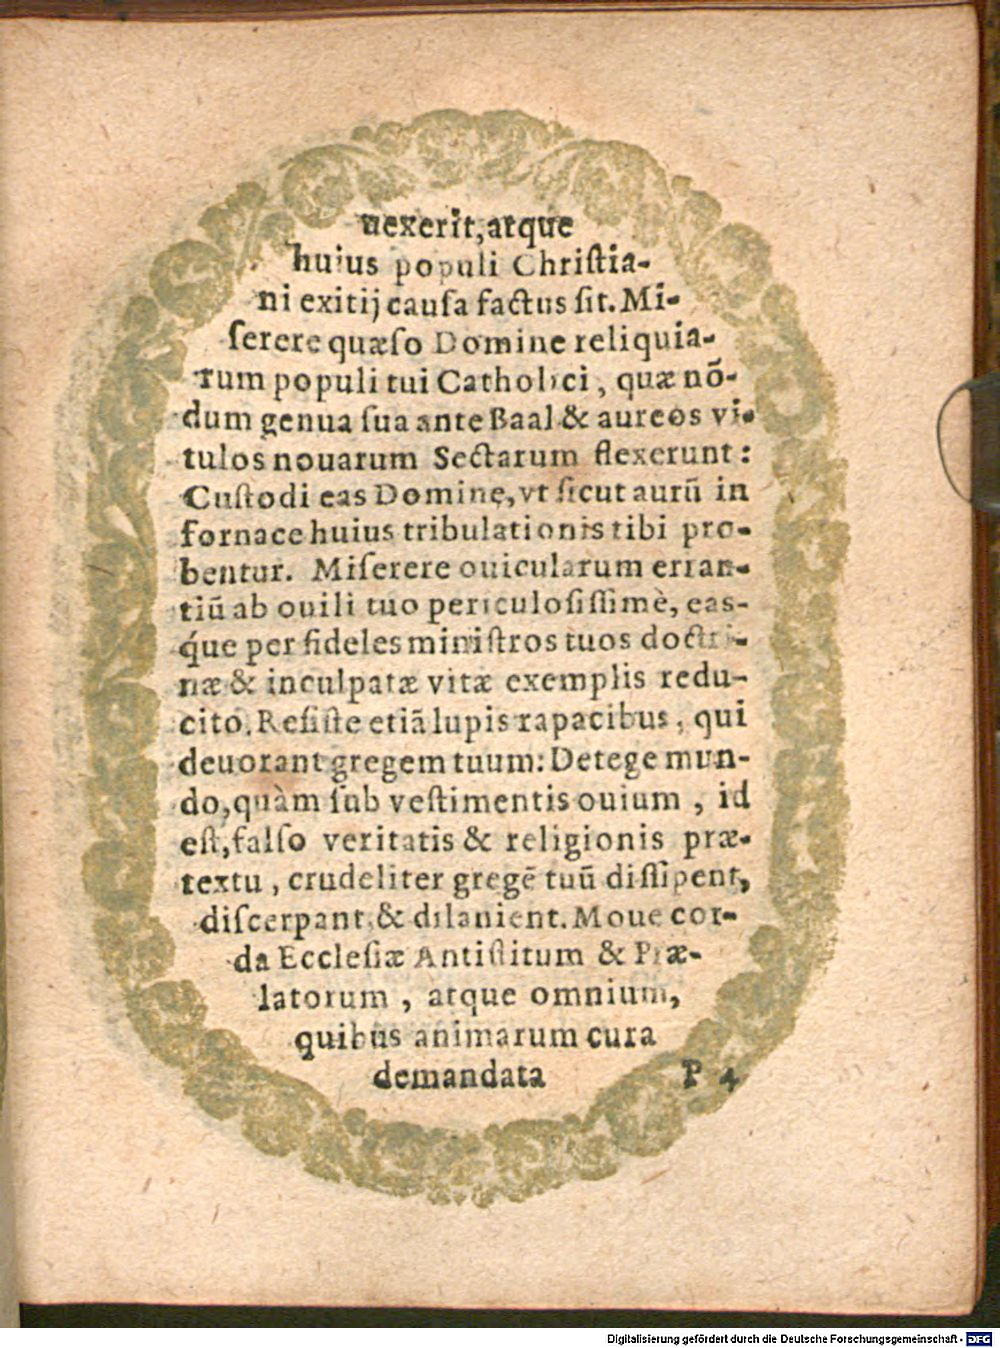 uexerit, atque
huius populi Chriſtia-
ni exitij cauſa factus ſit. Mi-
ſerere quæſo Domine reliquia-
rum populi tui Catholici, quæ nõ-
dum genua ſua ante Baal & aureos vi-
tulos nouarum Sectarum flexerunt:
Cuſtodi eas Domine, vt ſicut aurũ in
fornace huius tribulationis tibi pro-
bentur. Miſerere ouicularum erran-
tiũ ab ouili tuo periculoſiſſimè, eas-
q́ue per fideles miniſtros tuos doctri-
næ & inculpatæ vitæ exemplis redu-
cito. Reſiſte etiã lupis rapacibus, qui
deuorant gregem tuum: Detege mun-
do, quàm ſub veſtimentis ouium, id
eſt, falſo veritatis & religionis præ-
textu, crudeliter gregẽ tuũ diſſipent,
diſcerpant, & dilanient. Moue cor-
da Eccleſiæ Antiſtitum & Præ-
latorum, atque omnium,
quibus animarum cura
demandata P 4
Digitalisierung gefördert durch die Deutsche Forschungsgemeinschaft - DFG